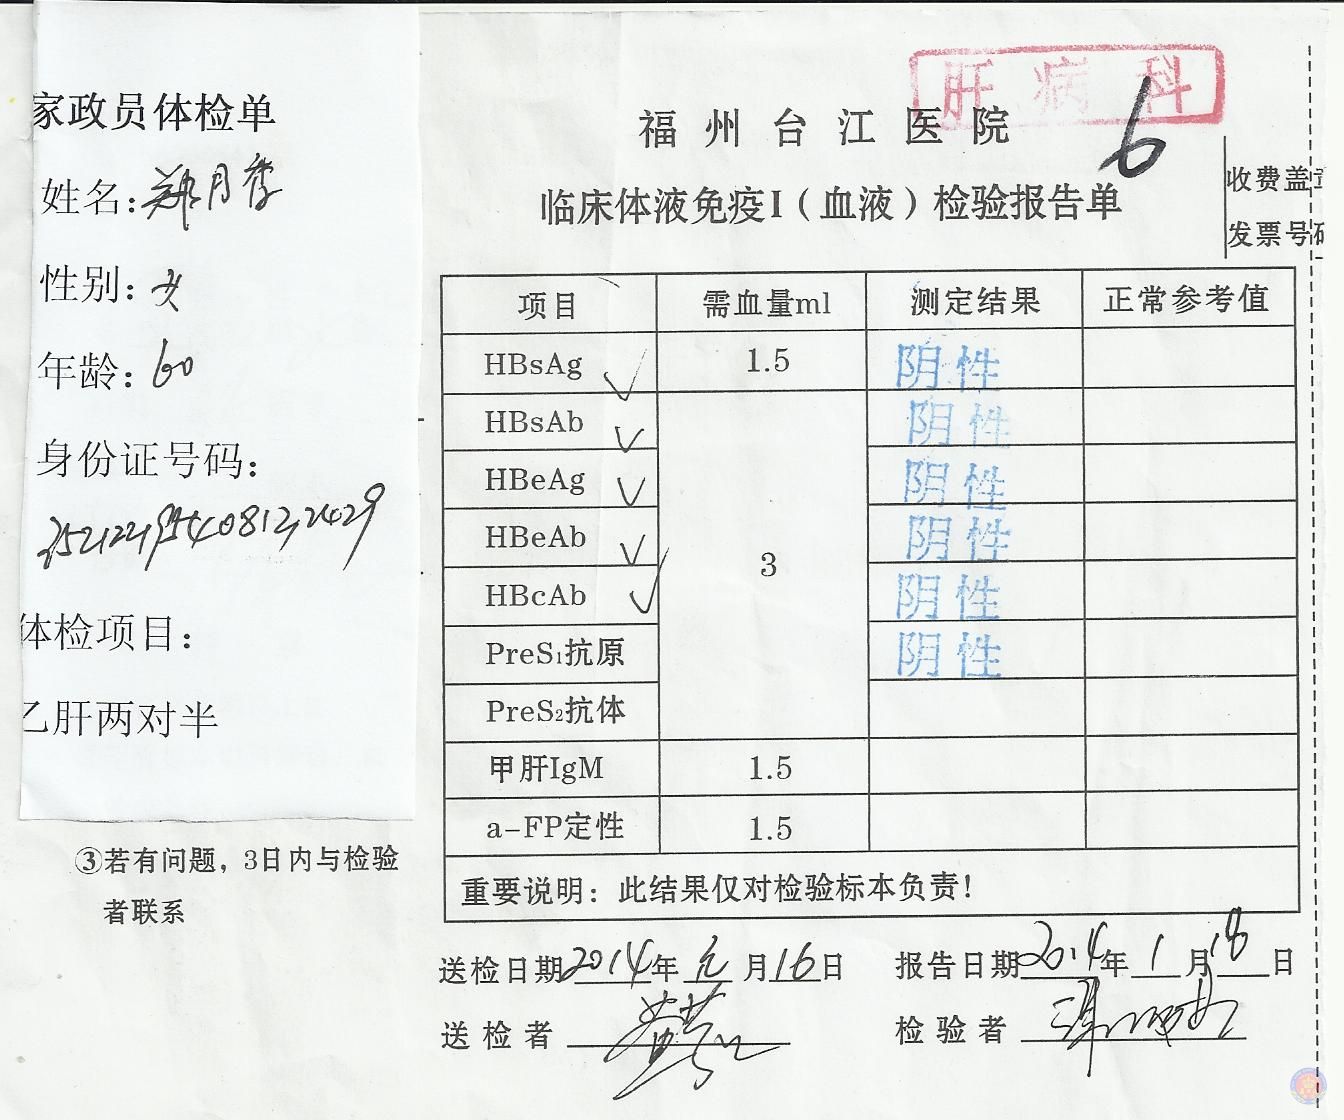 家政员体检单
姓名:郑月香
性别:女
年龄:60
身份证号码:
体检项目:
乙肝两对半
③若有问题，3日内与检验
者联系
肝病科
福州台江医院
6
临床体液免疫I（血液）检验报告单
收费盖章
发票号码
项目 需血量ml 测定结果 正常参考值
HBsAg ✓ 1.5 阴性
HBsAb ✓ 阴性
HBeAg ✓ 阴性
HBeAb ✓ 3 阴性
HBcAb ✓ 阴性
PreS₁抗原 阴性
PreS₂抗体
甲肝IgM 1.5
a-FP定性 1.5
重要说明：此结果仅对检验标本负责!
送检日期2014年元月16日 报告日期2014年1月18日
送检者 检验者